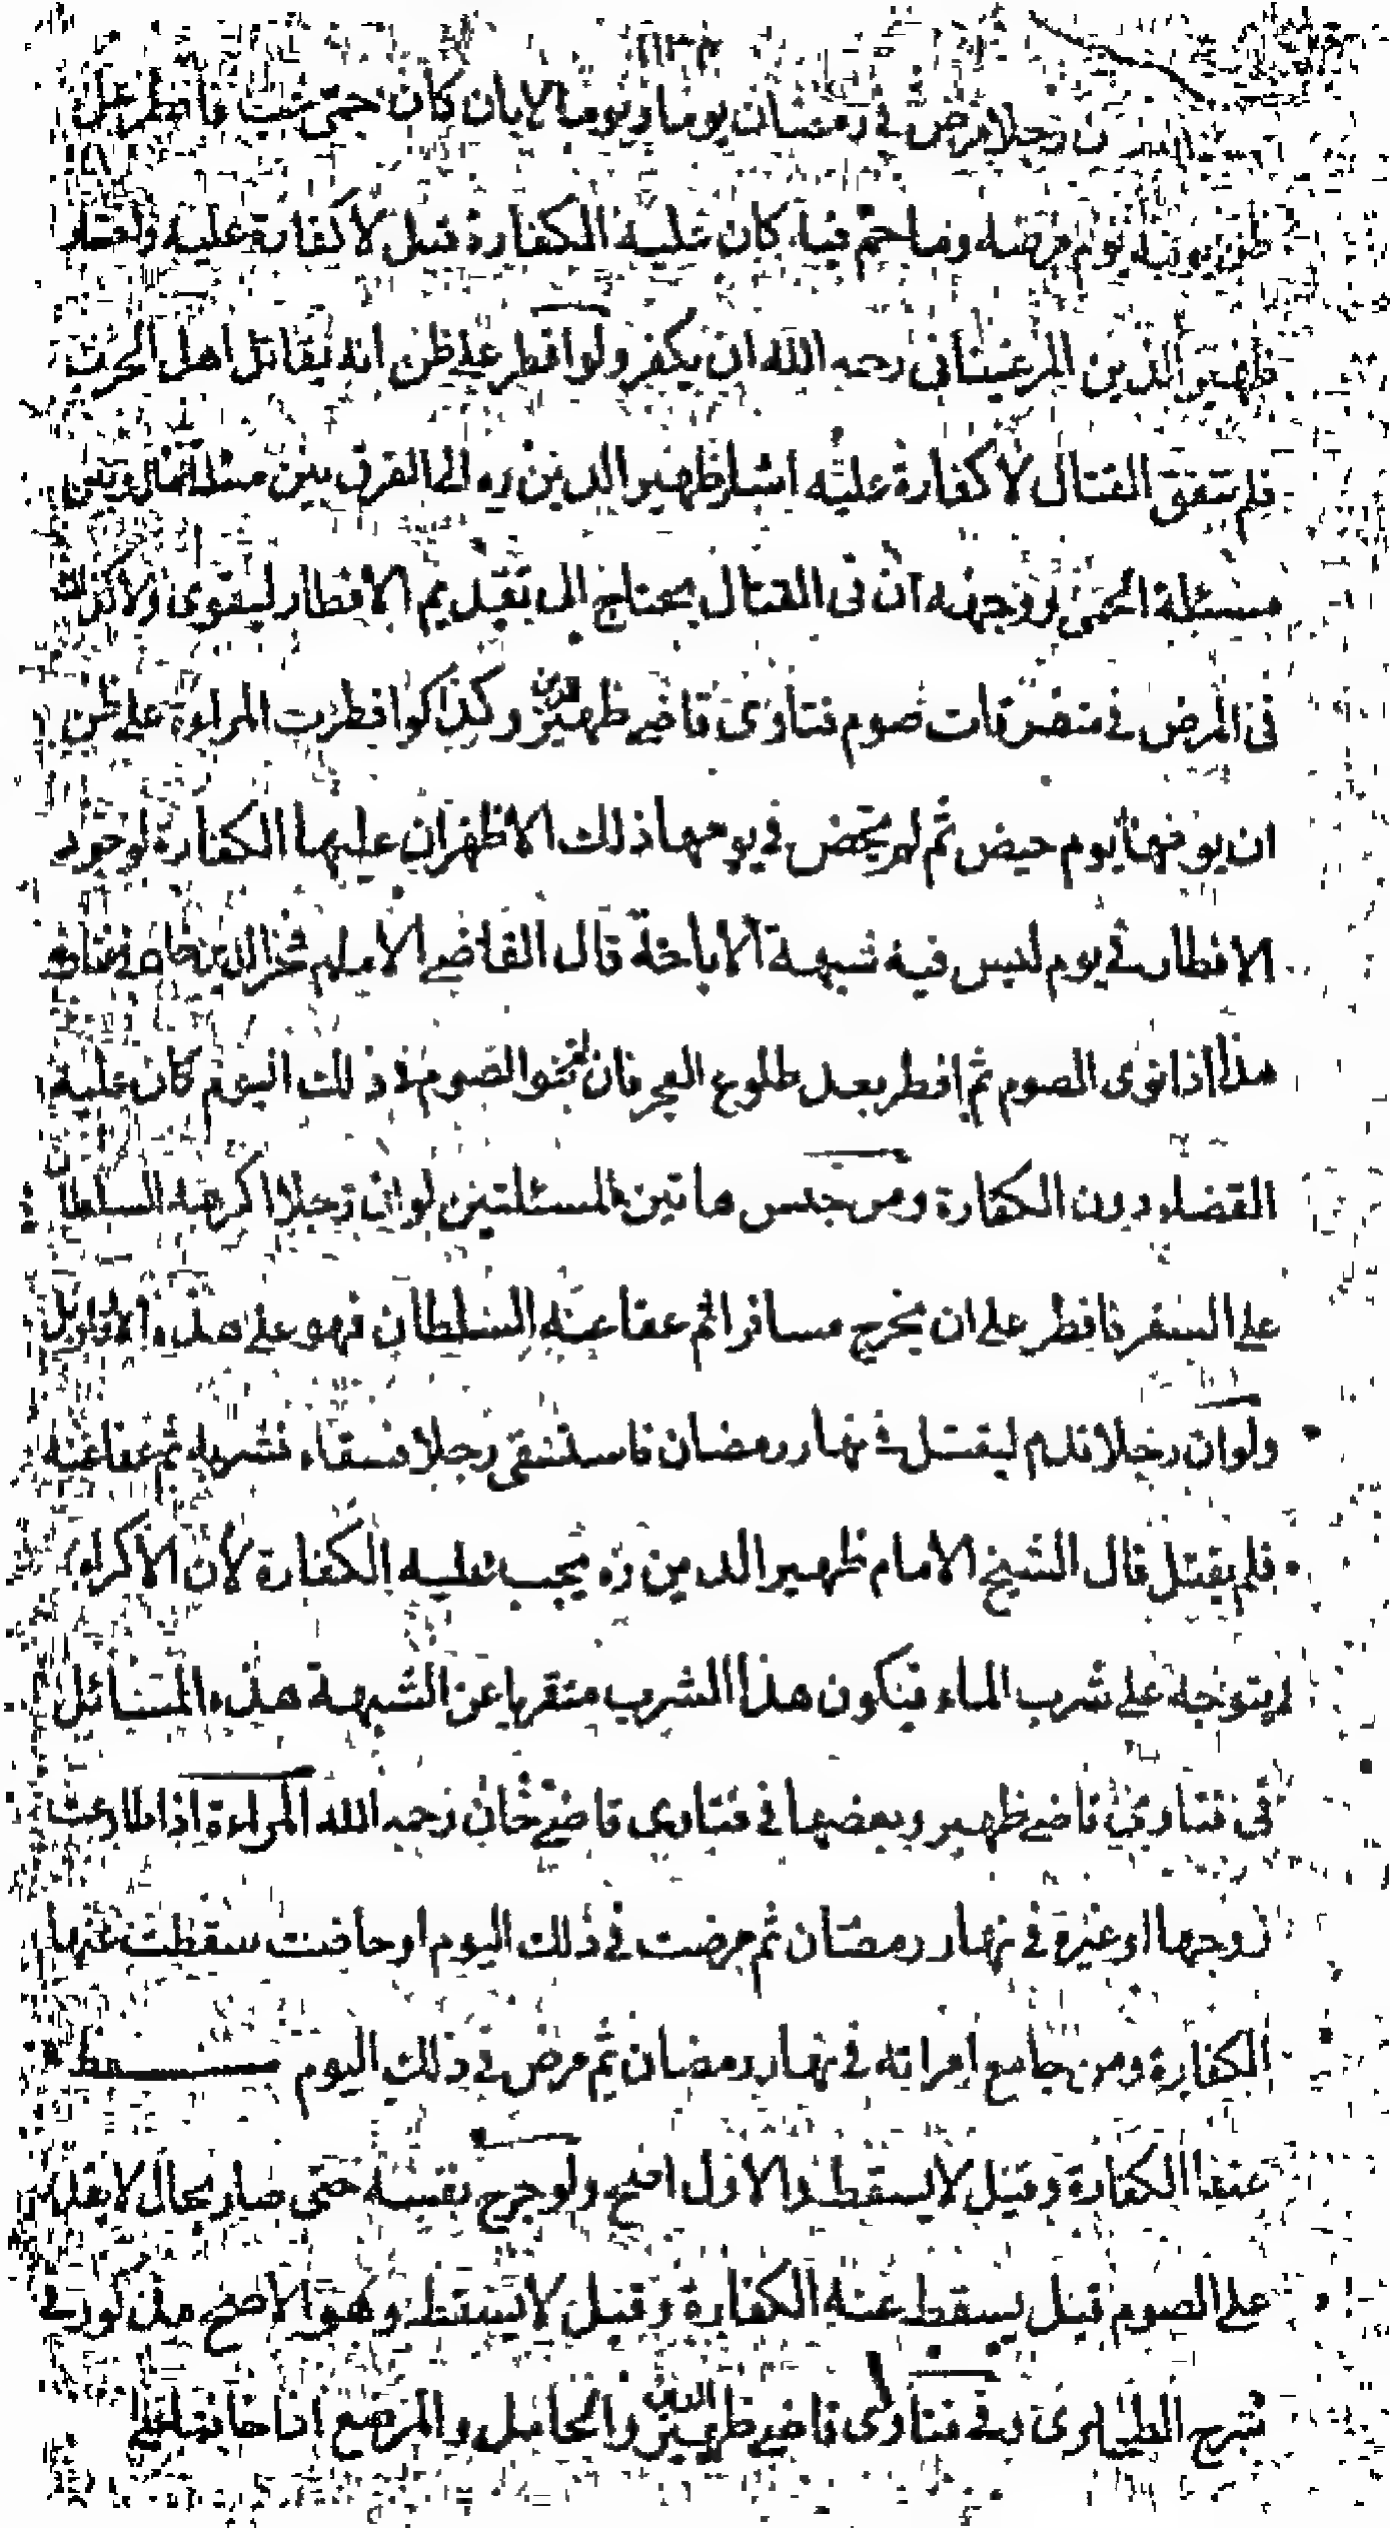 ن رجلا مرض في رمضان يوما ويوما لا بان كان حمى غب فافطر على
ظن يوم مرضه وما حم فيه كان عليه الكفارة قيل لا كفارة عليه واختار
ظهير الدين المرغيناني رحمه الله ان يكفر ولو افطر على ظن انه يقاتل اهل الحرب
فلم يتفق القتال لا كفارة عليه اشار ظهير الدين ره الى الفرق بين مسئلة وبين
مسئلة الحمى ووجهه ان في القتال يحتاج الى تقديم الافطار ليقوى ولا كذلك
في المرض في متفرقات صوم فتاوى قاضي ظهير الدين وكذا لو افطرت المراءة على ظن
ان يومها يوم حيض ثم لم تحض في يومها ذلك الاظهر ان عليها الكفارة لوجود
الافطار في يوم ليس فيه شبهة الاباحة قال القاضي الامام فخر الدين خان
هذا اذا نوى الصوم ثم افطر بعد طلوع الفجر فان لم ينو الصوم في ذلك اليوم كان عليه
القضاء دون الكفارة ومن جنس هاتين المسئلتين لو ان رجلا اكرهه السلطان
على السفر فافطر على ان يخرج مسافرا ثم عفا عنه السلطان فهو على هذه الاقاويل
ولو ان رجلا قدم ليقتل في نهار رمضان فاستسقى رجلا فسقاه فشربه ثم عفا عنه
فلم يقتل قال الشيخ الامام ظهير الدين ره يجب عليه الكفارة لان الاكراه
لم يتوجه على شرب الماء فيكون هذا الشرب متعريا عن الشبهة هذه المسائل
في فتاوى قاضي ظهير وبعضها في فتاوى قاضي خان رحمه الله المراءة اذا طاوعت
زوجها او غيره في نهار رمضان ثم مرضت في ذلك اليوم او حاضت سقطت عنها
الكفارة ومن جامع امراته في نهار رمضان ثم مرض في ذلك اليوم سقط
عنها الكفارة وقيل لا يسقط والاول اصح ولو جرح نفسه حتى صار بحال لا يقدر
على الصوم قيل يسقط عنه الكفارة وقيل لا يسقط وهو الاصح مذكور في
شرح الطحاوى وفي فتاوى قاضي ظهير الدين والحامل والمرضع اذا خافتا على